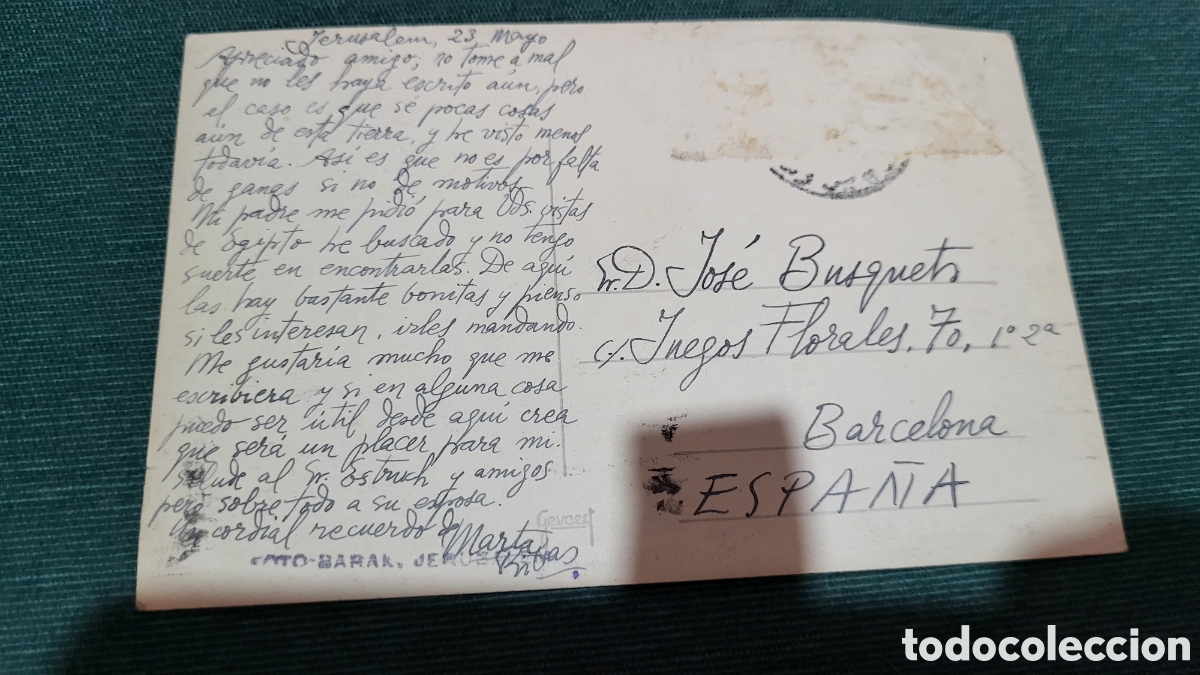 Jerusalem, 23 Mayo
Apreciado amigo; no tome a mal
que no les haya escrito aún, pero
el caso es que sé pocas cosas
aún de esta tierra, y he visto menos
todavía. Así es que no es por falta
de ganas si no de motivos.
Mi padre me pidió para Uds. vistas
de Egipto he buscado y no tengo
suerte en encontrarlas. De aquí
las hay bastante bonitas y pienso
si les interesan, irles mandando.
Me gustaría mucho que me
escribiera y si en alguna cosa
puedo ser útil desde aquí crea
que será un placer para mi.
Salude al Sr. Estruch y amigos
pero sobre todo a su esposa.
Un cordial recuerdo de
Marta
Ribas
Gevaert
FOTO-BARAK, JERUS
Sr. D. José Busquets
c/. Juegos Florales, 70, 1º 2ª
Barcelona
ESPAÑA
todocoleccion